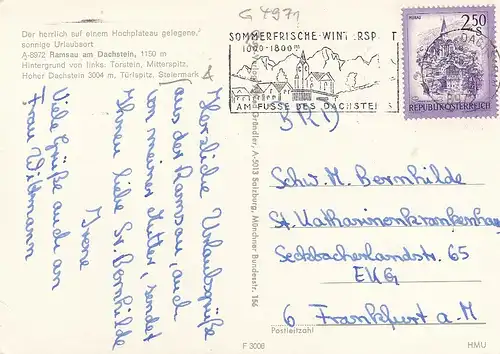 Der herrlich auf einem Hochplateau gelegene,
sonnige Urlaubsort
A-8972 Ramsau am Dachstein, 1150 m
Hintergrund von links: Torstein, Mitterspitz,
Hoher Dachstein 3004 m, Türlspitz, Steiermark
G 4971
SOMMERFRISCHE-WINTERSP T
1000-1800m
AM FUSSE DES DACHSTEI
MURAU
2.50
REPUBLIK ÖSTERREICH
Herzliche Urlaubsgrüße
aus der Ramsau, auch
von meiner Mutter, sendet
Ihnen liebe Sr. Bernhilde
Irene
Viele Grüße auch an
Frau Wittmann
Gründler, A-5013 Salzburg, Münchner Bundesstr. 156
BRD
Schw. M. Bernhilde
St. Katharinenkrankenhaus
Seckbacherlandstr. 65
EKG
6 Frankfurt a. M.
Postleitzahl
F 3006
HMU